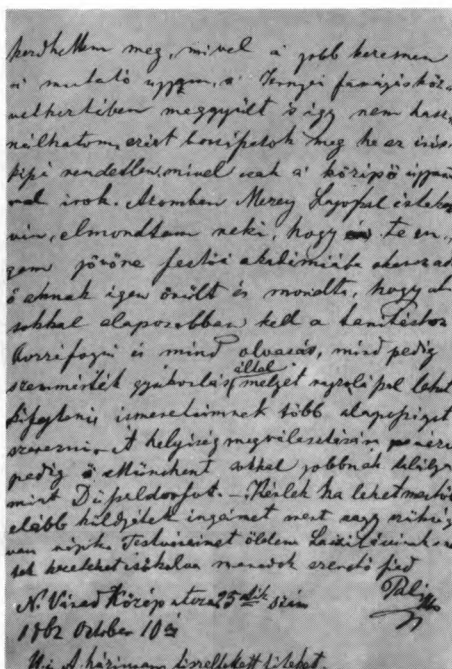 kezdhettem meg, mivel a' jobb kezemen
a' mutató ujjam, a' favágás köz-
vetkeztében meggyült is így nem hasz-
nálhatom, ezért bocsássatok meg ha az írás
kipé rendetlen, mivel csak a' középső ujjam-
mal irok. Azomban Mezey Lajossal értekez-
vén, elmondtam neki, hogy te en-
gem jövőre festői akadémiába akarsz ad
ő ennek igen örült és mondta, hogy
sokkal alaposabban kell a tanításhoz
hozzáfogni és mind olvasás, mind pedig
szemmérték gyakorlás által melyet rajzolással lehet
kifejteni ismereteimnek több alaposságot
szerezni. A helyiség megválasztására nézve
pedig ő Münchent sokkal jobbnak találja
mint Düsseldorfot. – Kérlek ha lehet mentől
előbb küldjétek ingeimet mert nagy szükség
van réjok Testvéreimet ölelem
kezeteket csókolva maradok szerető fiad
Pali
N. Várad Közép utcza 25dik szám
1862 October 10én
A háziasszony tiszteltet titeket.